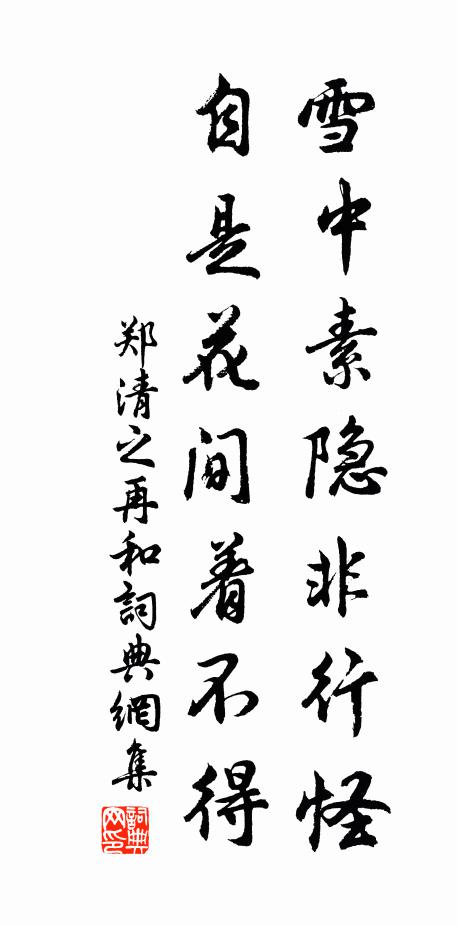 雪中素隐非行怪
自是花间着不得
郑清之再和詞典網集
詞典網印